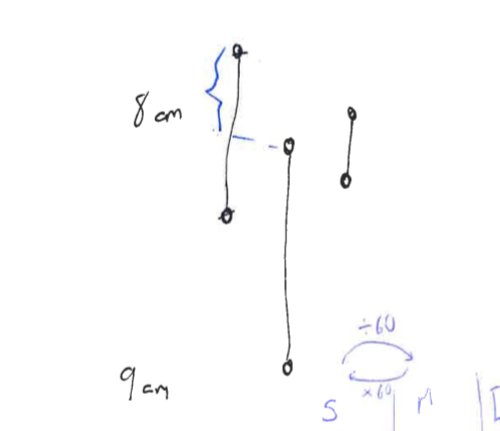 8 am
9 am
÷60
×60
S | M |